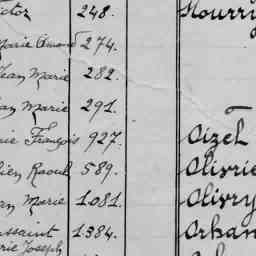 ictor 248. Mourry
Marie Amand 274.
Jean Marie 282.
an Marie 291.
rie François 927. Oizel
lien Raoul 589. Olivrie
an Marie 1081. Olivry
ussaint 1384. Orhan
rie Joseph